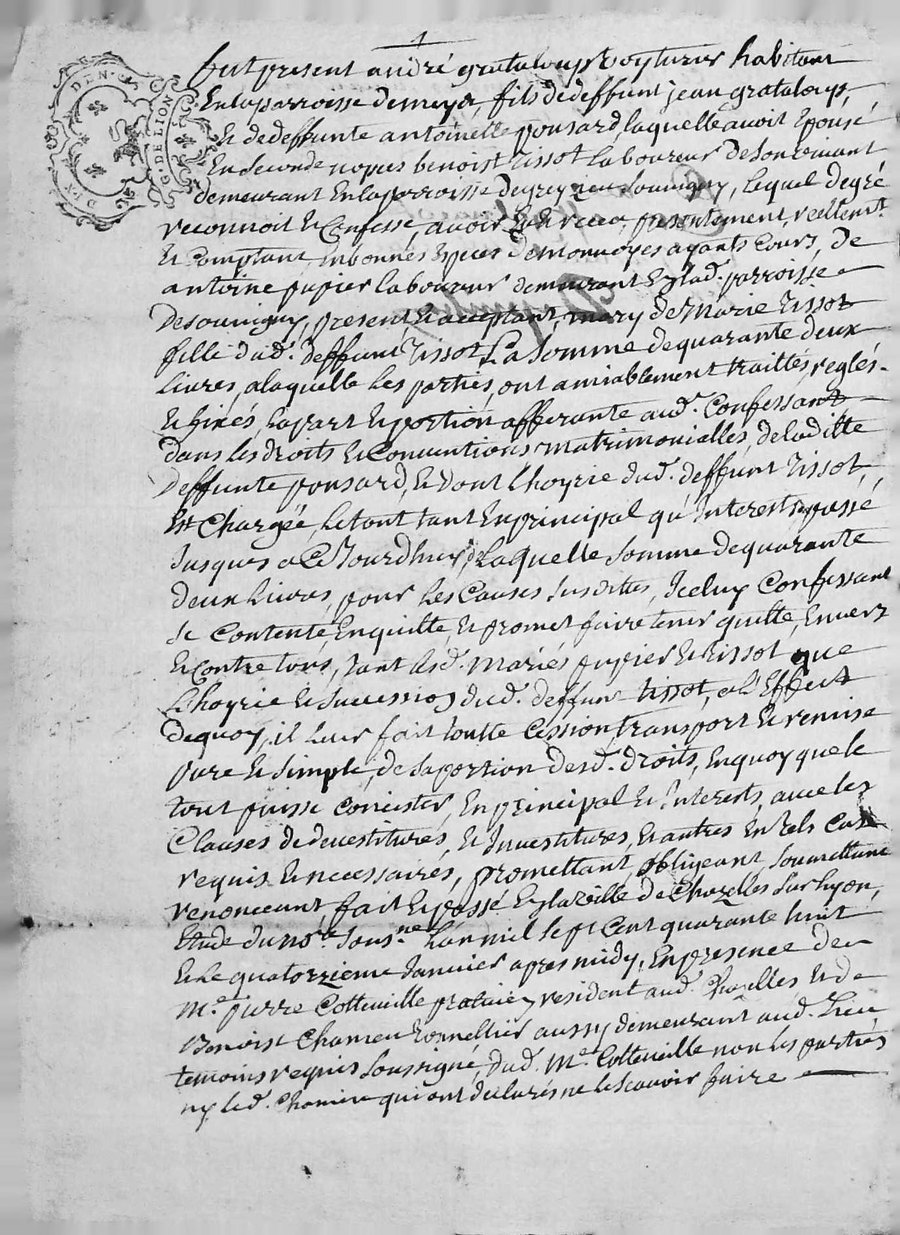 1
DEN.
G. DE LION
fut present andré grataloup voyturier habitant
En la parroisse de meys, fils de deffunt jean grataloup,
Et de deffunte antoinette ponsard laquelle avoit Epousé
En seconde nopces benoist Tissot laboureur de son vivant
demeurant En la parroisse de grezieu souvigny, lequel de gré
reconnoit Et Confesse, avoir Eu Et receu presentement reellemt.
Et Comptant, En bonnes Especes de monnoyes ayants Cours, de
antoine pupier laboureur demeurant En lad. parroisse
De souvigny, present Et acceptant, mary de Marie Tissot
fille dud. deffunt Tissot La somme de quarante deux
Livres, a laquelle Les parties, ont amiablement traittés, reglés
Et fixés, la part Et portion afferante aud. Confessant
dans les droits Et Conventions matrimonielles, de laditte
Deffunte ponsard, Et dont Lhoyrie dud. deffunt Tissot,
Est Chargée, Le tout tant En principal qu'Interests passé
Jusques a Ce Jourdhuy, de Laquelle somme de quarante
deux Livres, pour Les Causes susdittes, Iceluy Confessant
se Contente, En quitte, Et promet faire tenir quitte, Envers
Et Contre tous, tant lesd. Mariés pupier Et Tissot que
Lhoyrie Et succession dud. deffunt tissot, a L'Effect
de quoy, il leur fait toutte Cession, transport Et remise
pure Et simple, de sa portion desd. droits, En quoy que le
tout puisse concister, En principal Et Interests, avec les
Clauses de devestitures, Et Investitures, Et autres En tels Cas
requis Et necessaires, promettant, obligeant, soumettant
renonceant, fait Et passé En la ville de Chazelles sur Lyon,
Etude du nore. sousne. L'an mil sept Cent quarante huit
Et Le quatorzieme Janvier apres midy, En presence de
Me. pierre Cotteville praticien resident aud. Chazelles Et de
Benoist tonnellier aussy demeurant aud. Lieu
temoins requis soussigné, dud. Me. Cotteville non les parties
ny led. qui ont declarés ne le scavoir faire